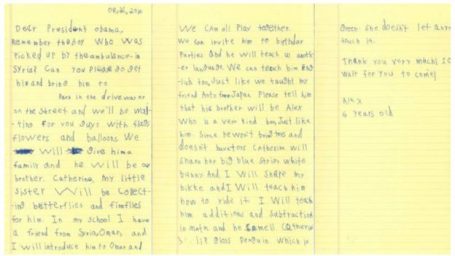 Dear President Obama,
Remember the boy who was
picked up by the ambulance in
Syria? Can you please go get
him and bring him to
Park in the driveway or
on the street and we'll be wai-
ting for you guys with flags
flowers and balloons. We
will give him a
family and he will be our
brother. Catherine, my little
sister will be collect-
ing butterflies and fireflies
for him. In my school I have
a friend from Syria, Omar, and
I will introduce him to Omar and
we can all play together.
We can invite him to birthday
parties and he will teach us anoth-
er language. We can teach him Eng-
lish too, just like we taught my
friend Aoto from Japan. Please tell him
that his brother will be Alex
who is a very kind boy, just like
him. Since he won't bring toys and
doesn't have toys Catherine will
share her big blue stripy white
bunny. And I will share my
bike and I will teach him
how to ride it. I will teach
him additions and subtractions
in math and he smell Catherine
's lip gloss penguin which is
green. She doesn't let anyone
touch it.
Thank you very much! I can't
wait for you to come!
Alex
6 years old